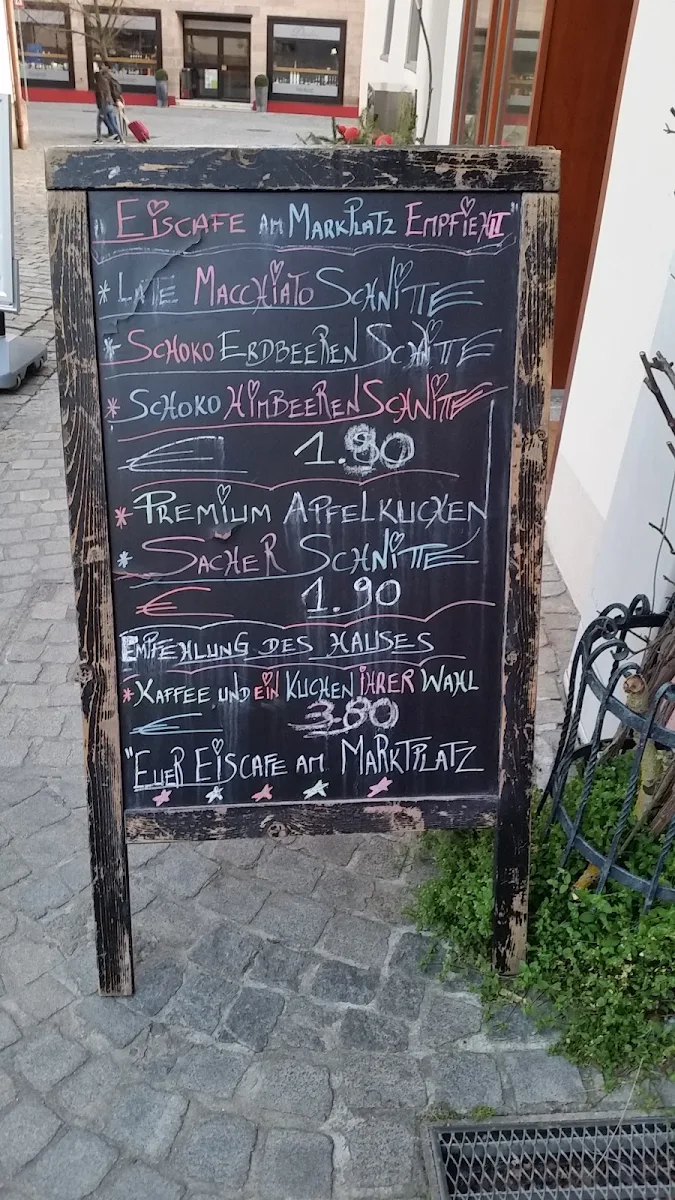 "EISCAFE AM MARKPLATZ EMPFIEHLT"
*LATTE MACCHIATO SCHNITTE
*SCHOKO ERDBEEREN SCHNITTE
*SCHOKO HIMBEEREN SCHNITTE
€ 1.80
*PREMIUM APFELKUCHEN
*SACHER SCHNITTE
€ 1.90
EMPFEHLUNG DES HAUSES
*KAFFEE UND EIN KUCHEN IHRER WAHL
€ 3.80
"EUER EISCAFE AM MARKTPLATZ